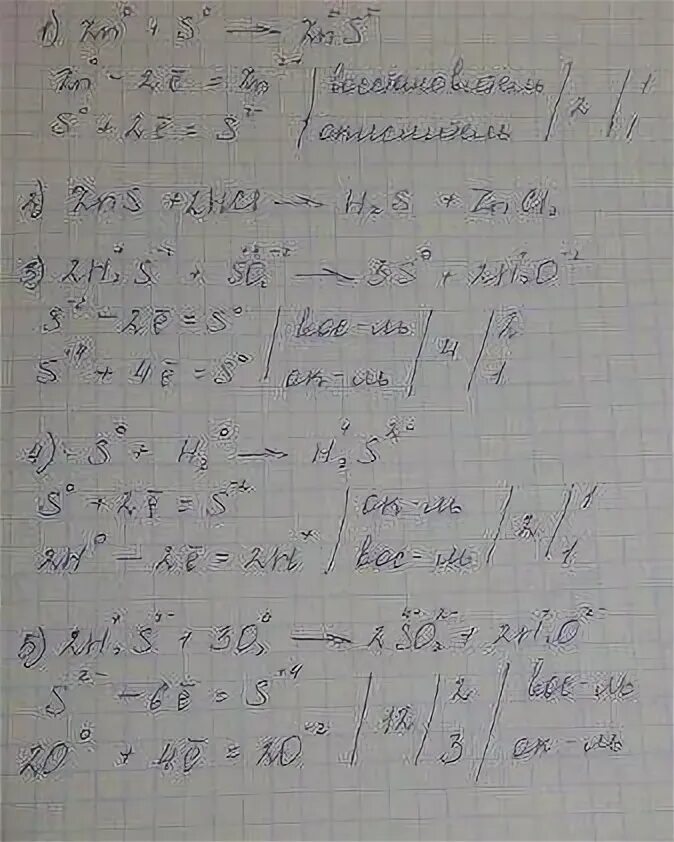 1) Zn⁰ + S⁰ → Zn²⁺S²⁻
Zn⁰ - 2ē = Zn²⁺ | восстановитель | 2 | 1
S⁰ + 2ē = S²⁻ | окислитель | 1
2) ZnS + 2HCl → H₂S + ZnCl₂
3) 2H₂⁺S⁻² + SO₂⁺⁴⁻² → 3S⁰ + 2H₂⁺O⁻²
S⁻² - 2ē = S⁰ | вос-ль | 4 | 2
S⁺⁴ + 4ē = S⁰ | ок-ль | 1
4) S⁰ + H₂⁰ → H₂⁺S²⁻
S⁰ + 2ē = S⁻² | ок-ль | 2 | 1
2H⁰ - 2ē = 2H⁺ | вос-ль | 1
5) 2H₂⁺S²⁻ + 3O₂⁰ → 2SO₂⁴⁺²⁻ + 2H₂⁺O²⁻
S²⁻ - 6ē = S⁺⁴ | 12 | 2 | вос-ль
2O⁰ + 4ē = 2O⁻² | 3 | ок-ль